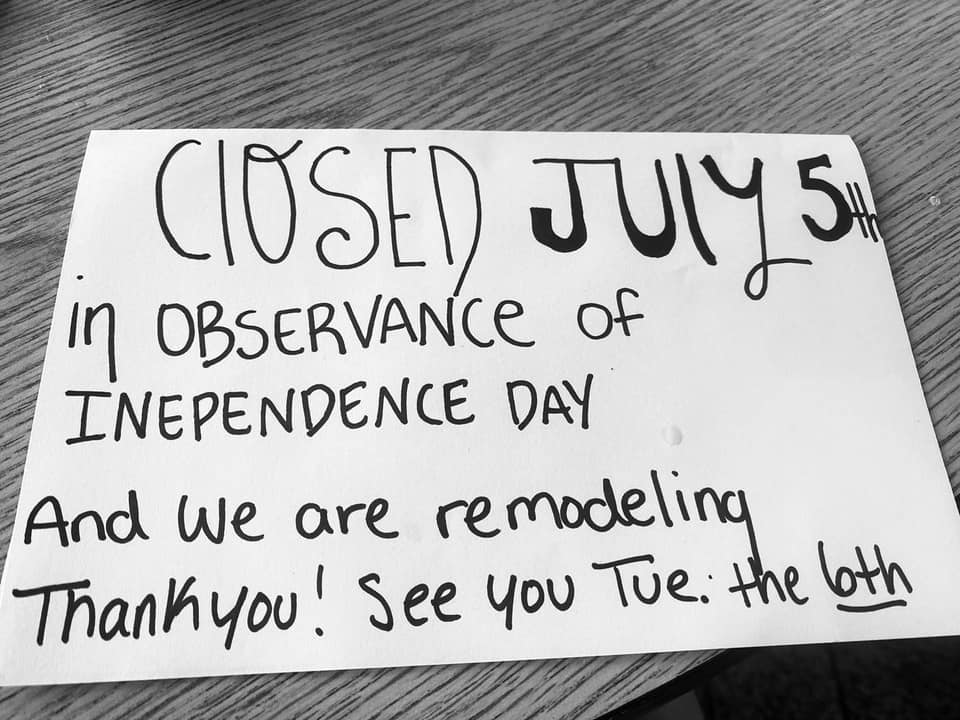 ClOSED JUlY 5th
in OBSERVANCe of
INEPENDENCE DAY
And We are remodeling
Thankyou! See you Tue: the 6th